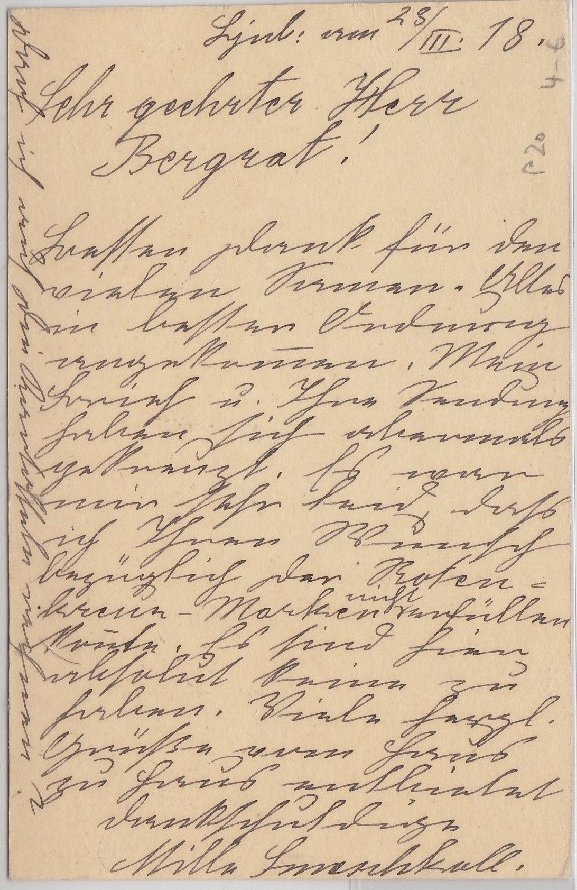 Ljub: am 23/III. 18.
Sehr geehrter Herr
Bergrat!
Besten Dank für den
vielen Samen. Alles
in bester Ordnung
angekom̅en. Mein
Brief u. Ihre Sendung
haben sich abermals
gekreuzt. Es war
mir sehr leid, dass
ich Ihren Wunsch
bezüglich der Roten=
kreuz-Marken nicht erfüllen
kon̅te. Es sind hier
absolut keine zu
haben. Viele herzl.
Grüße vom Haus
zu Haus entbietet
dankschuldige
Milla
P 20
4-6